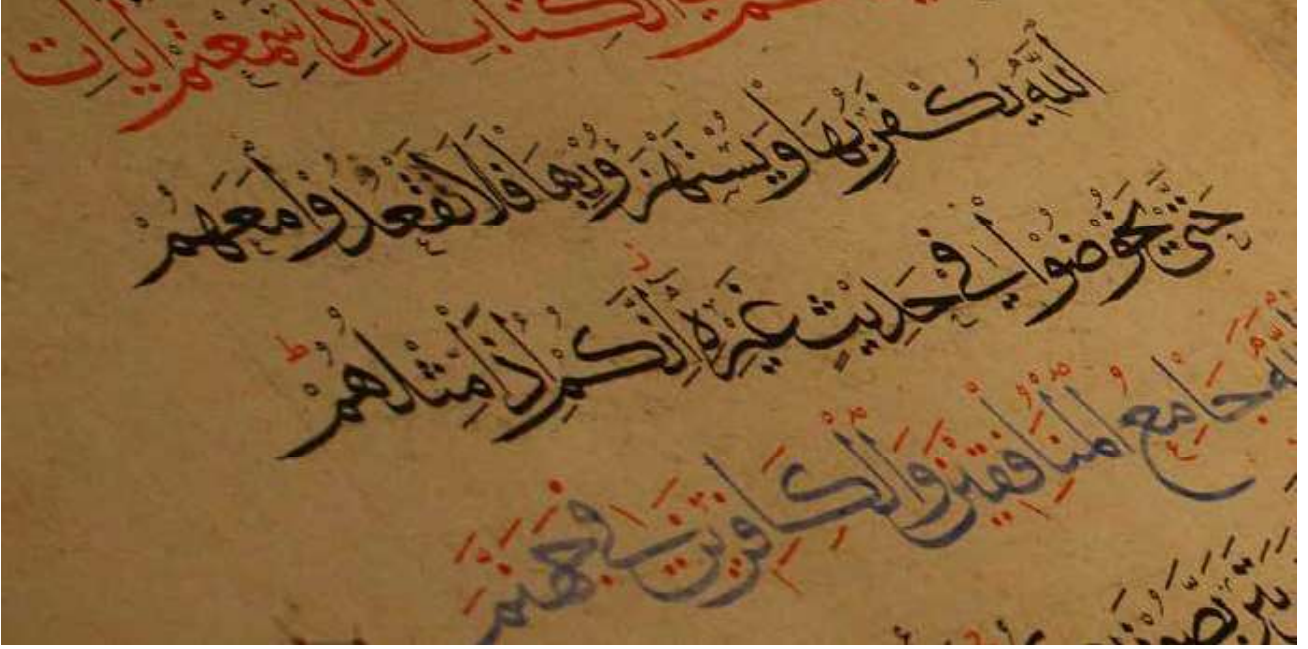 الْكِتَابِ أَنْ إِذَا سَمِعْتُمْ آيَاتِ
اللَّهِ يُكْفَرُ بِهَا وَيُسْتَهْزَؤُ بِهَا فَلَا تَقْعُدُوا مَعَهُمْ
حَتَّى يَخُوضُوا فِي حَدِيثٍ غَيْرِهِ إِنَّكُمْ إِذًا مِثْلُهُمْ
اللَّهَ جَامِعُ الْمُنَافِقِينَ وَالْكَافِرِينَ فِي جَهَنَّمَ